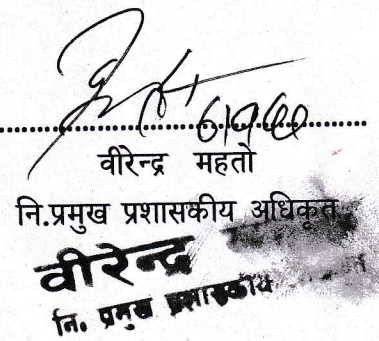 वीरेन्द्र महतो
नि.प्रमुख प्रशासकीय अधिकृत
वीरेन्द्र
नि. प्रमुख प्रशासकीय